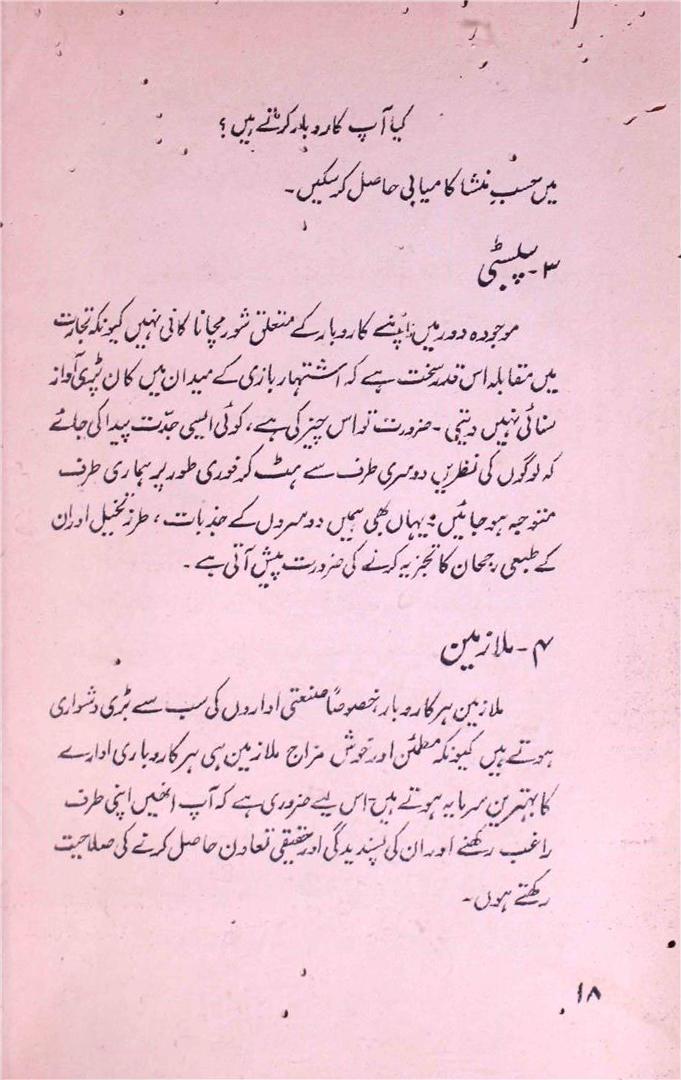 کیا آپ کاروبار کرتے ہیں؟
میں حسبِ منشا کامیابی حاصل کرسکیں۔
۳۔ پبلسٹی
موجودہ دور میں اپنے کاروبار کے متعلق شور مچانا کافی نہیں کیونکہ تجارت
میں مقابلہ اس قدر سخت ہے کہ اشتہار بازی کے میدان میں کان پڑی آواز
سنائی نہیں دیتی۔ ضرورت تو اس چیز کی ہے، کوئی ایسی جدّت پیدا کی جائے
کہ لوگوں کی نظریں دوسری طرف سے ہٹ کر فوری طور پر ہماری طرف
متوجہ ہو جائیں؛ یہاں بھی ہمیں دوسروں کے جذبات، طرزِ تخیل اور ان
کے طبعی رجحان کا تجزیہ کرنے کی ضرورت پیش آتی ہے۔
۴۔ ملازمین
ملازمین ہر کاروبار، خصوصاً صنعتی اداروں کی سب سے بڑی دشواری
ہوتے ہیں کیونکہ مطمئن اور خوش مزاج ملازمین ہی ہر کاروباری ادارے
کا بہترین سرمایہ ہوتے ہیں۔ اس لیے ضروری ہے کہ آپ انھیں اپنی طرف
راغب رکھنے اور ان کی پسندیدگی اور حقیقی تعاون حاصل کرنے کی صلاحیت
رکھتے ہوں۔
۱۸